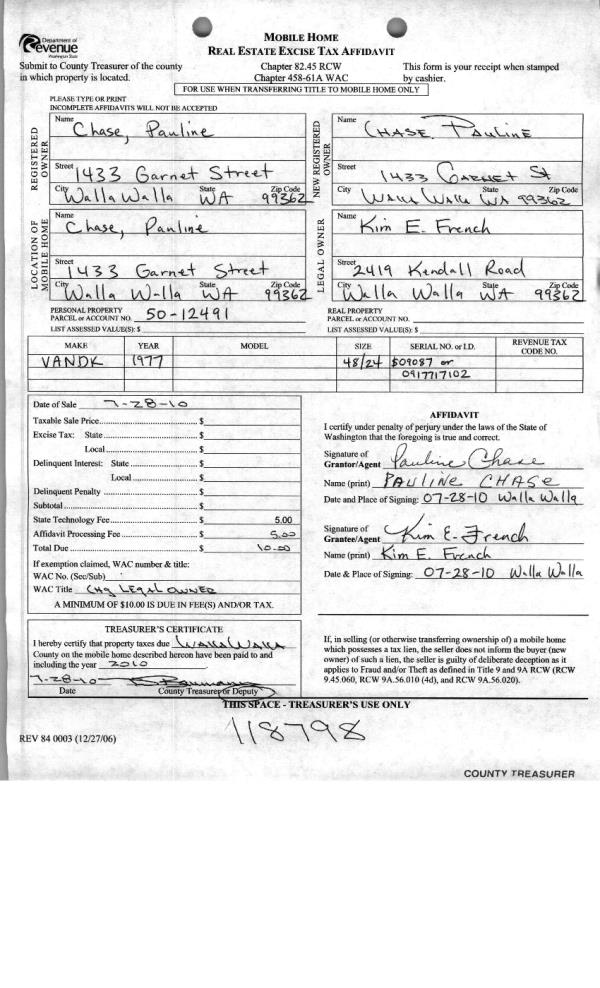 Department of
Revenue
Washington State
MOBILE HOME
REAL ESTATE EXCISE TAX AFFIDAVIT
Submit to County Treasurer of the county
in which property is located.
Chapter 82.45 RCW
Chapter 458-61A WAC
This form is your receipt when stamped
by cashier.
FOR USE WHEN TRANSFERRING TITLE TO MOBILE HOME ONLY
PLEASE TYPE OR PRINT
INCOMPLETE AFFIDAVITS WILL NOT BE ACCEPTED
REGISTERED OWNER
Name Chase, Pauline
Street 1433 Garnet Street
City Walla Walla State WA Zip Code 99362
NEW REGISTERED OWNER
Name CHASE, PAULINE
Street 1433 GARNET St
City WALLA WALLA State WA Zip Code 99362
LOCATION OF MOBILE HOME
Name Chase, Pauline
Street 1433 Garnet Street
City Walla Walla State WA Zip Code 99362
LEGAL OWNER
Name Kim E. French
Street 2419 Kendall Road
City Walla Walla State WA Zip Code 99362
PERSONAL PROPERTY
PARCEL or ACCOUNT NO. 50-12491
LIST ASSESSED VALUE(S): $
REAL PROPERTY
PARCEL or ACCOUNT NO.
LIST ASSESSED VALUE(S): $
MAKE YEAR MODEL SIZE SERIAL NO. or I.D. REVENUE TAX CODE NO.
VANDK 1977 48/24 S09087 or
0917717102
Date of Sale 7-28-10
Taxable Sale Price $
Excise Tax: State $
Local $
Delinquent Interest: State $
Local $
Delinquent Penalty $
Subtotal $
State Technology Fee $ 5.00
Affidavit Processing Fee $ 5.00
Total Due $ 10.00
If exemption claimed, WAC number & title:
WAC No. (Sec/Sub)
WAC Title CHG LEGAL OWNER
A MINIMUM OF $10.00 IS DUE IN FEE(S) AND/OR TAX.
AFFIDAVIT
I certify under penalty of perjury under the laws of the State of
Washington that the foregoing is true and correct.
Signature of
Grantor/Agent Pauline Chase
Name (print) PAULINE CHASE
Date and Place of Signing: 07-28-10 Walla Walla
Signature of
Grantee/Agent Kim E. French
Name (print) Kim E. French
Date & Place of Signing: 07-28-10 Walla Walla
TREASURER'S CERTIFICATE
I hereby certify that property taxes due WALLA WALLA
County on the mobile home described hereon have been paid to and
including the year 2010
7-28-10
Date County Treasurer or Deputy
If, in selling (or otherwise transferring ownership of) a mobile home
which possesses a tax lien, the seller does not inform the buyer (new
owner) of such a lien, the seller is guilty of deliberate deception as it
applies to Fraud and/or Theft as defined in Title 9 and 9A RCW (RCW
9.45.060, RCW 9A.56.010 (4d), and RCW 9A.56.020).
THIS SPACE - TREASURER'S USE ONLY
118798
REV 84 0003 (12/27/06)
COUNTY TREASURER